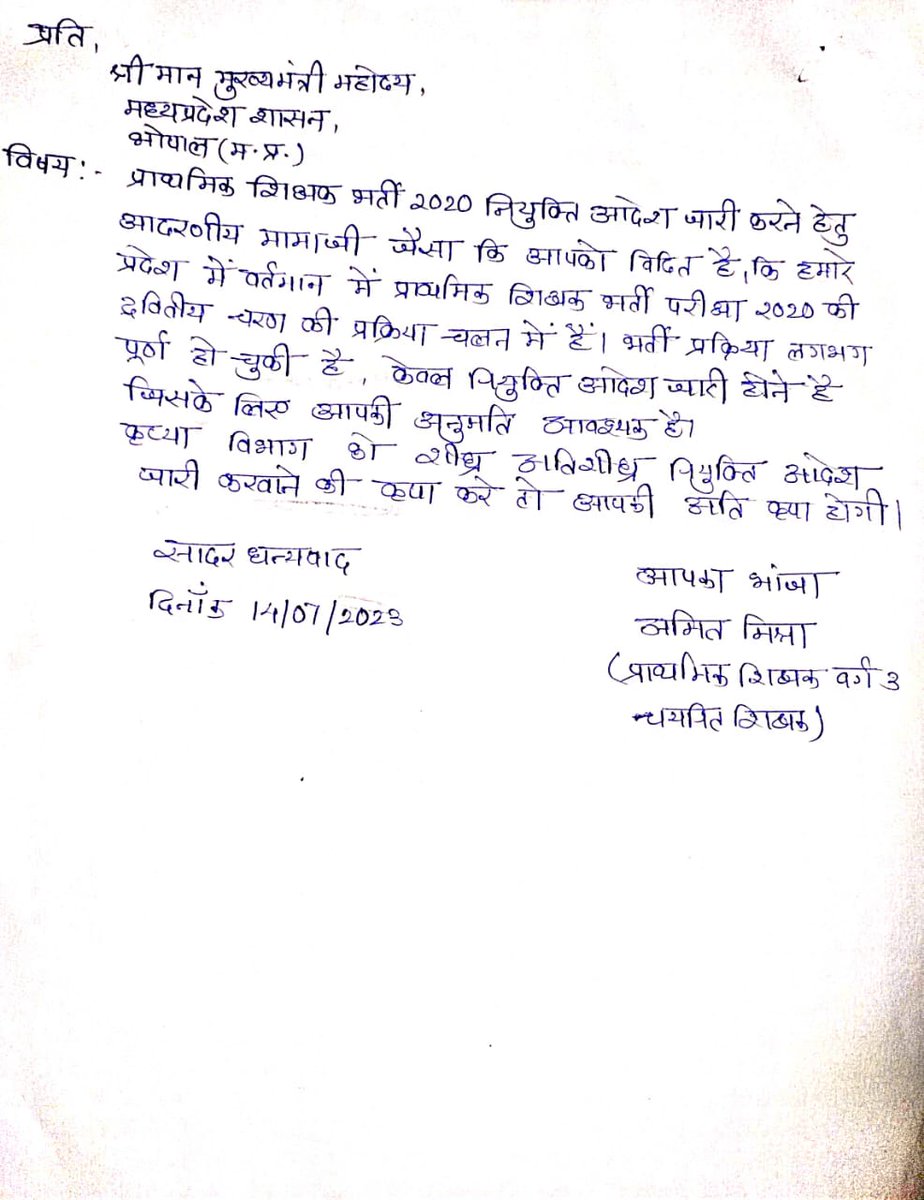 प्रति,
श्री मान मुख्यमंत्री महोदय,
मध्यप्रदेश शासन,
भोपाल (म.प्र.)
विषय:- प्राथमिक शिक्षक भर्ती 2020 नियुक्ति आदेश जारी करने हेतु
आदरणीय मामाजी जैसा कि आपको विदित है, कि हमारे
प्रदेश में वर्तमान में प्राथमिक शिक्षक भर्ती परीक्षा 2020 की
द्वितीय चरण की प्रक्रिया चलन में हैं। भर्ती प्रक्रिया लगभग
पूर्ण हो चुकी है, केवल नियुक्ति आदेश जारी होने है
जिसके लिए आपकी अनुमति आवश्यक है।
कृप्या विभाग को शीघ्र अतिशीघ्र नियुक्ति आदेश
जारी करवाने की कृपा करे तो आपकी अति कृपा होगी।
सादर धन्यवाद
दिनाँक 14/07/2023
आपका भांजा
अमित मिश्रा
(प्राथमिक शिक्षक वर्ग 3
चयनित शिक्षक)